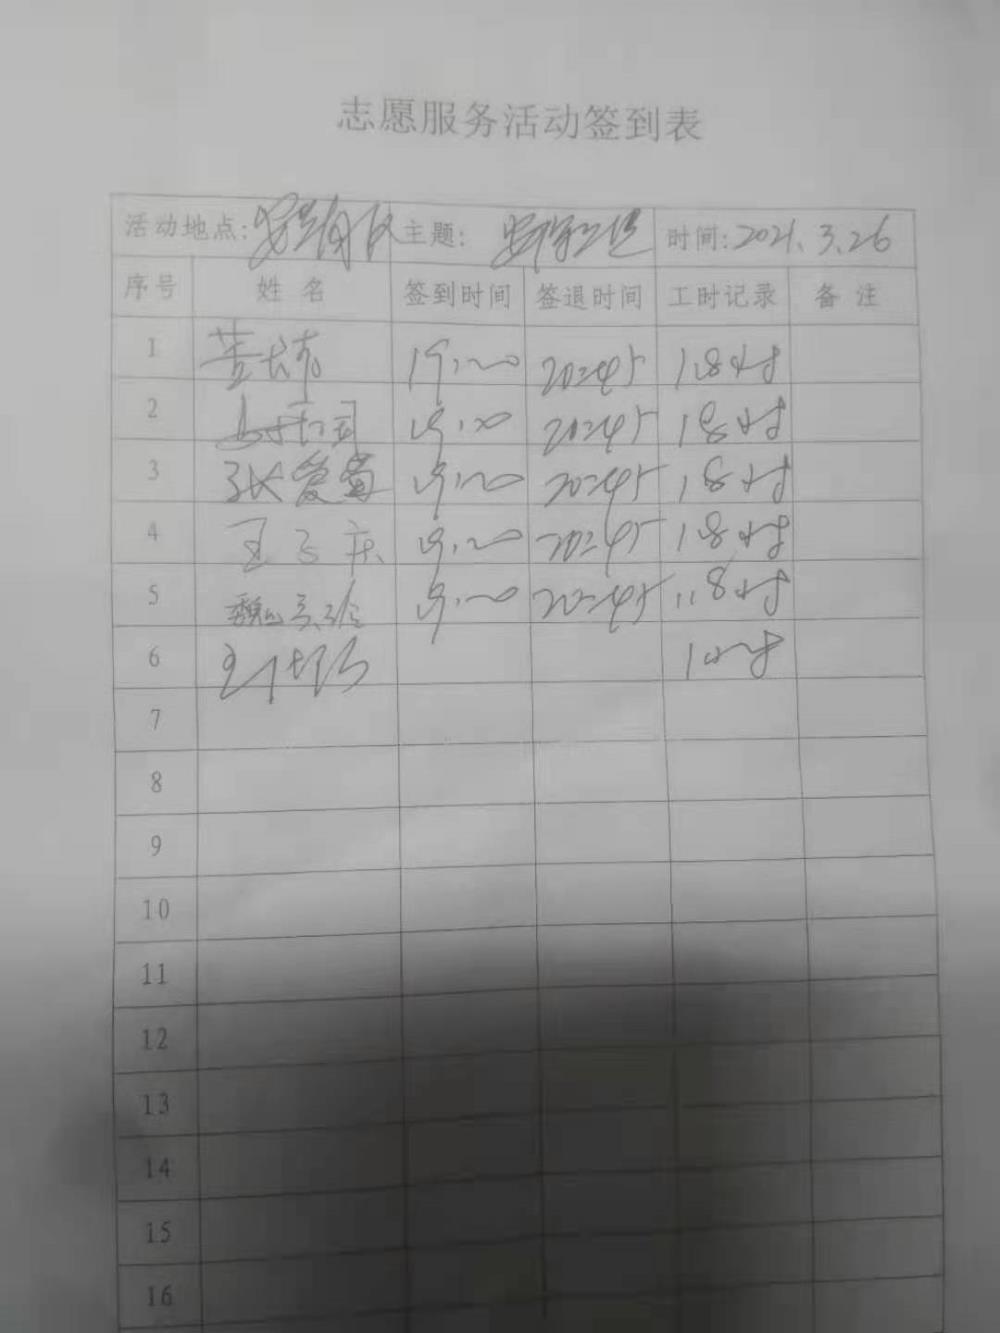 志愿服务活动签到表
活动地点: 主题: 时间:2021.3.26
序号 姓名 签到时间 签退时间 工时记录 备注
1 19:00 20:45 1.8小时
2 19:00 20:45 1.8小时
3 张爱菊 19:00 20:45 1.8小时
4 王子庆 19:00 20:45 1.8小时
5 19:00 20:45 1.8小时
6 1小时
7
8
9
10
11
12
13
14
15
16